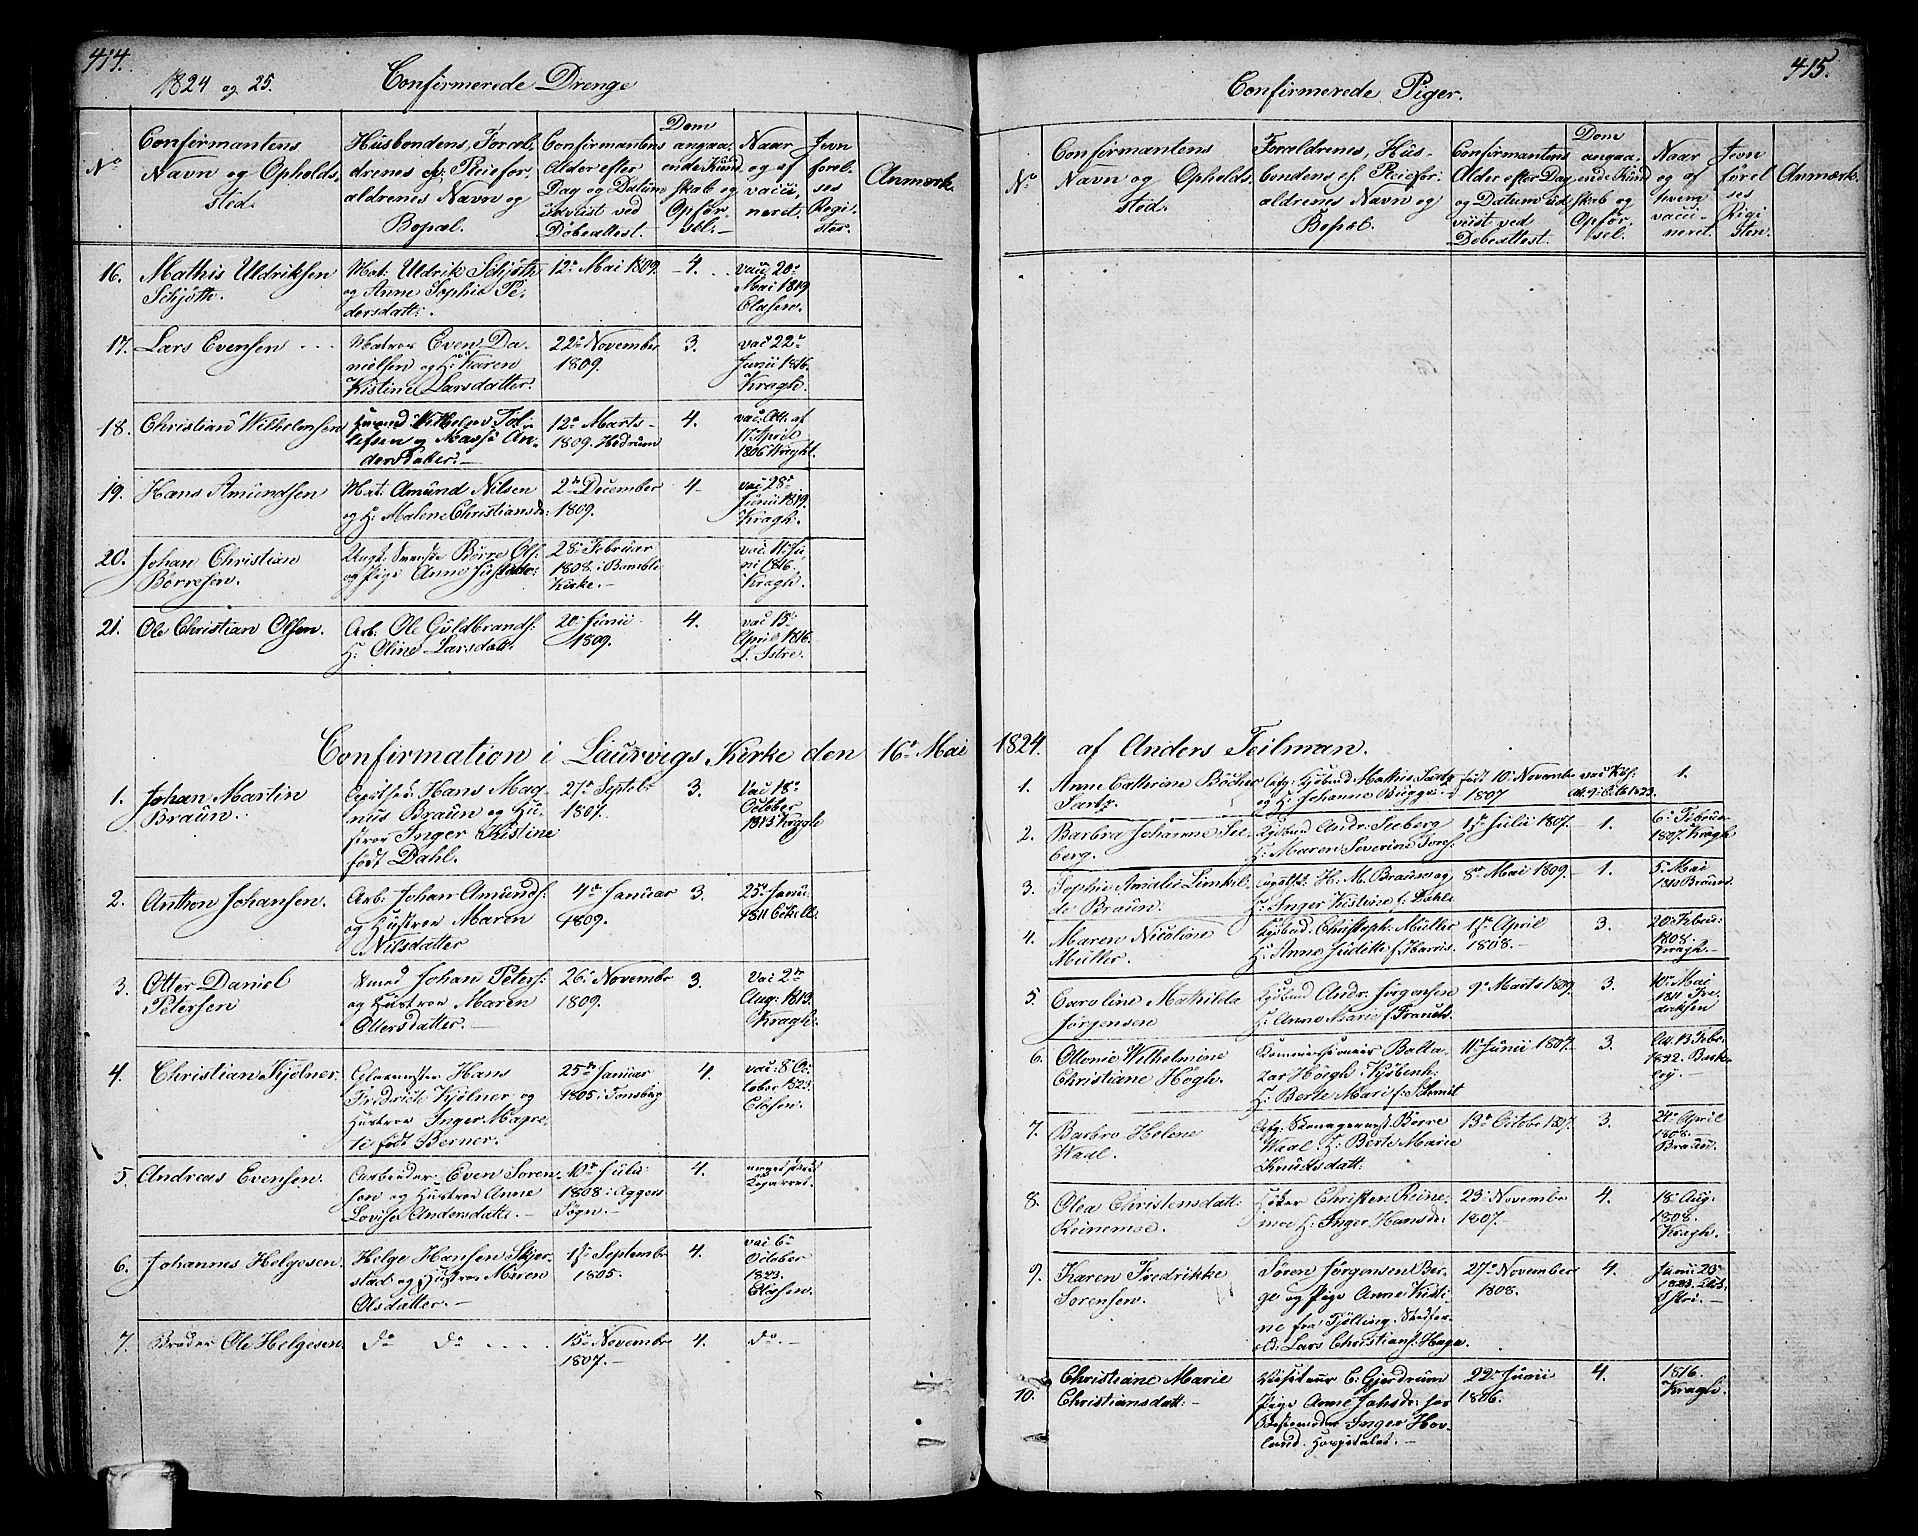 414.
1824 og 25.
Confirmerede Drenge
No
Confirmantens
Navn og Opholds,
sted.
Husbondens, Foræl,
drenes ell: Pleiefor,
ældrenes Navn og
Bopæl.
Confirmantens
Alder efter
Dag og Datum
udviist ved
Døbeattest.
Dom
angaa,
ende Kund,
skab og
Opfør,
sel.
Naar
og af
vacci,
neret.
Jevn
førel,
ses
Regi,
ster.
Anmærk.
16. Mathis Uldriksen
Schjøtte.
Mat: Uldrik Schjøth
og Anne Sophie Pe,
dersdatt:.
12te Mai 1809.
4.
vacc 20de
Mai 1819
Clasen.
17. Lars Evensen
Matros Even Da,
nielsen og H: Karen
Kistine Larsdatter.
22de November
1809.
3.
vac 22de
Junii 1816.
Kragh.
18. Christian Wilhelmsen
Wilhelm
og Masse An,
dersdatter.
12te Marts
1809. Hedrum
4.
vac: Att. af
17 April
1806 Kragh.
19. Hans Amundsen
Mat. Amund Nilsen
og H: Malene Christiansdr:
2den December
1809.
4
vac 28de
Junii 1819.
Kragh.
20. Johan Christian
Børresen.
Ungk: Børre Ols:
og Pige Anne
28de Februar
1808 i Bamble
Kirke.
vac: 11te Ju
ni 1816.
Kragh.
21. Ole Christian Olsen.
Arb. Ole Guldbrands:
H: Oline Larsdatt.
20de Junii
1809.
4.
vac 15de
April 1816.
L. Istre.
Confirmation i Laurvigs Kirke den 16de Mai
1. Johan Martin
Braun.
Hans Mag,
nus Braun og Hu,
strue Inger Kistine
født Dahl.
27de Septbr
1807.
3.
Vac 18de
October
1813 Kragh
2. Anthon Johansen.
Arb: Johan Amunds:
og Hustroe Maren
Nilsdatter
4de Januar
1809.
3.
25de Janu:
1811
3. Otter Daniel
Petersen
Smed Johan Peters:
og Hustroe Maren
Ottersdatter.
26de Novembr
1809.
3.
Vac 2den
Aug: 1813.
Kragh.
4. Christian Kjølner.
Glarmester Hans
Fredrich Kjølner og
Hustroe Inger Magre,
te født Berner.
25de Januar
1805. Tonsberg
4.
vac: 8 Oc
tober 1823.
Clasen.
5. Andreas Evensen.
Arbeider Even Soren
sen og Hustroe Anne
Lovise Andersdatte.
10de Julii
1808 i Aggers
Sogn.
4.
6. Johannes Helgesen.
Helge Hansen Skjer
stad og Hustroe Maren
Olsdatter.
1ste Septembr
1805.
4.
vac 6te
October
1823.
Clasen.
7. Broder Ole Helgesen.
do do
15de Novembr
1807.
4.
do.
415.
Confirmerede Piger.
No
Confirmantens
Navn og Opholds,
sted.
Forældrenes, Hus-
bondens ell. Pleiefor,
ældrenes Navn og
Bopæl.
Confirmantens
Alder efter Dag
og Datum ud
viist ved
Døbeattest.
Dom
angaa,
ende Kund
skab og
Opfør,
sel.
Naar
og af
hvem
vacci-
neret.
Jevn
førel
ses
Regi
ster.
Anmærk.
1824. af Anders Teilman.
1. Anne Cathrine Bøcher
Sartz.
Mathis Sartz
og H. Johanne Bugge
født 10de Novembr
1807
1.
2. Barbra Johanne See
berg.
Andr: Seeberg
H: Maren Severine
1ste Julii 1807.
1.
6te Februa
1807. Kragh
3. Sophie Amalie
de Braun.
H. M. Braun og
H: Inger Kistine f: Dahle
8de Mai 1809.
1.
5. Mai
1810 Braun.
4. Maren Nicoline
Muller.
Christoph: Müller
H: Anne Juditte f.
1ste April
1808.
3.
20de Febru:
1808.
Kragh.
5. Caroline Mathilde
Jørgensen
Andr. Jørgensen
H: Anne Marie f.
9de Marts 1809.
3.
10de Mai
1811 Fre
driksen
6. Ottonie Wilhelmine
Christiane Høgh.
Balta,
zar Høegh i Kjøbenh:
H: Berte Marie f: Schmit
11te Junii 1807.
3.
7. Barbro Helene
Waal.
Børre
Waal. H: Børte Marie
Knutsdatt:
13de Octobr 1807.
3.
24de April
1808.
Braun.
8. Olea Christensdatt:
Reinemoe.
Christen Reine,
moe H: Inger Hansdr:
23de Novembr
1807.
4.
18de Aug:
1808.
Kragh.
9. Karen Fredrikke
Sorensen.
Søren Jørgensen Ber,
ge og Pige Anne Kisti,
ne fra Tjølling.
Lars Christians: Haga.
27de November
1808.
4.
Junii 20de
10. Christiane Marie
Christiansdatt:
Visiteur C: Gjerdrum
Pige Anne
Bestemoder Inger Hov,
land. Hospitalet.
22de Junii
1806.
4.
1816.
Kragh.